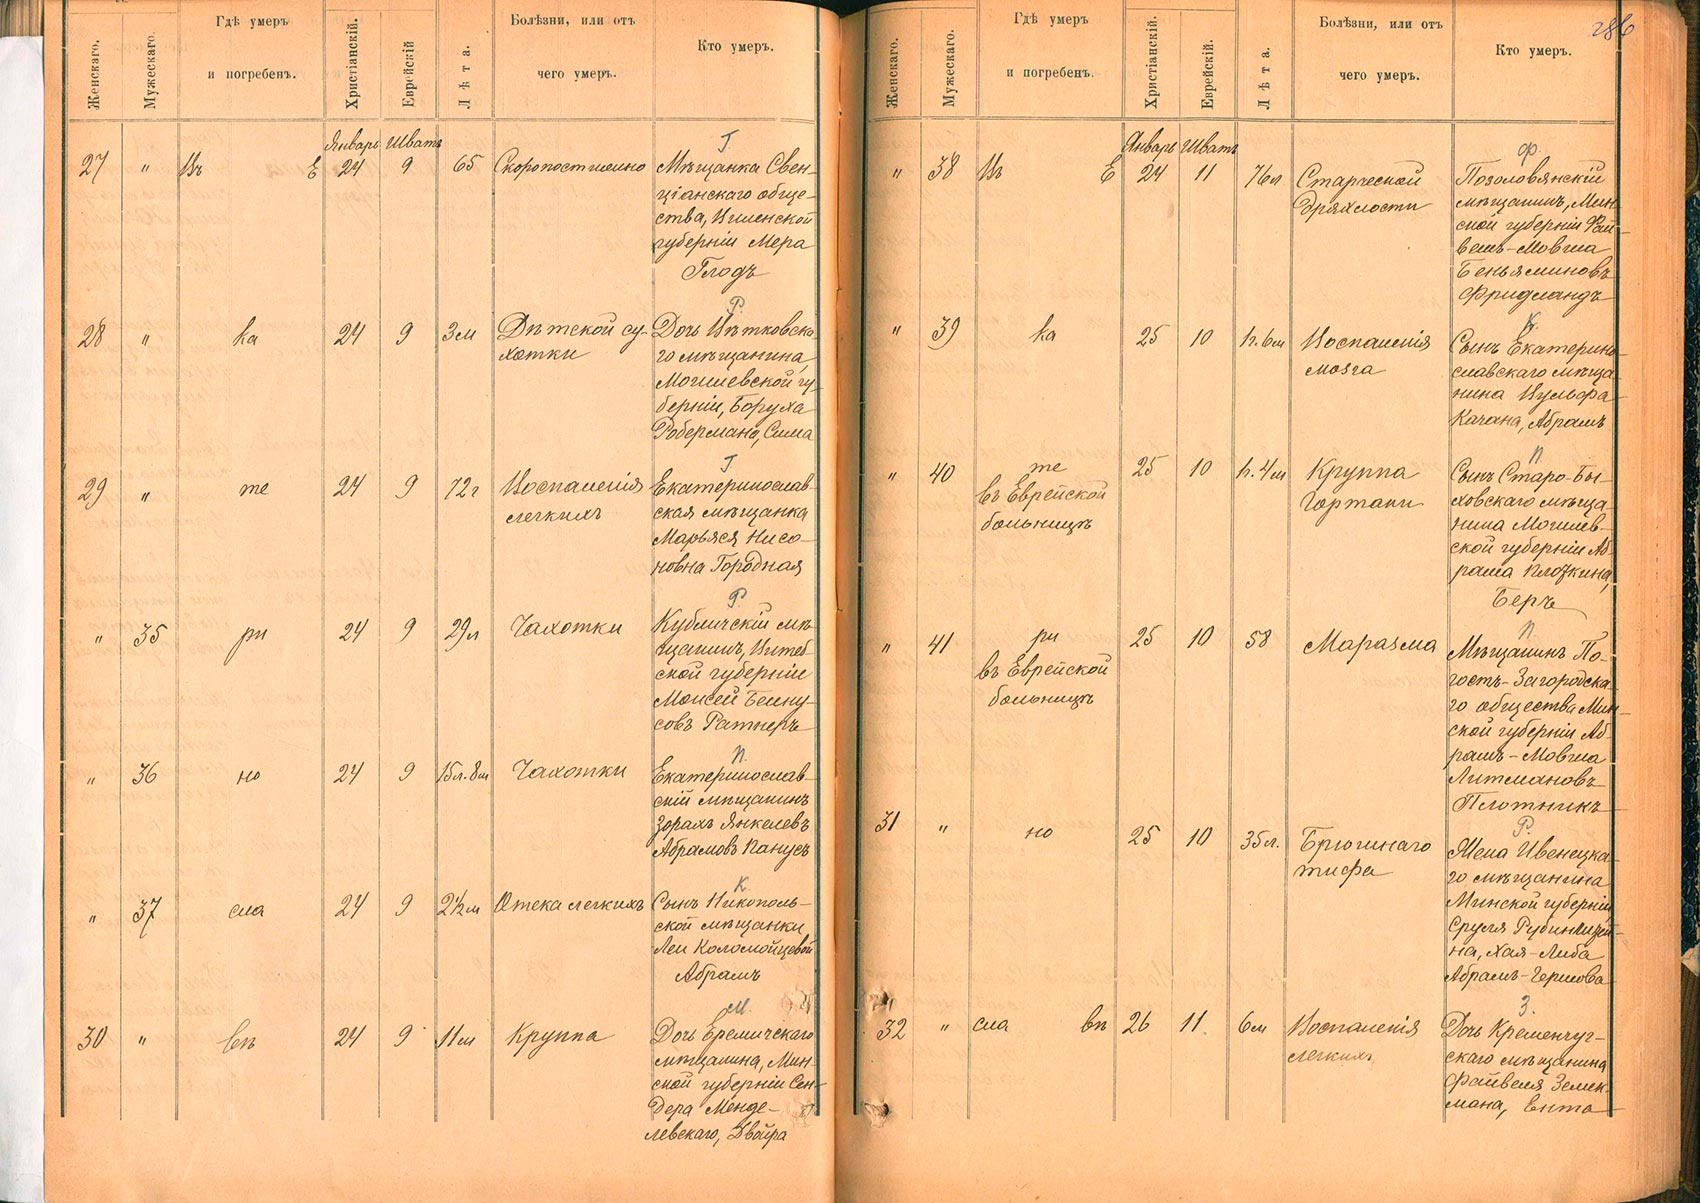 Женскаго.
Мужескаго.
Гдѣ умеръ
и погребенъ.
Христіанскій.
Еврейскій
Лѣта.
Болѣзни, или отъ
чего умеръ.
Кто умеръ.
Январь Шватъ
27 " Въ Е 24 9 65 Скоропостижно
Г.
Мѣщанка Свен-
ціанскаго обще-
ства, Виленской
губерніи Мера
Глодъ
28 " ка 24 9 3м Дѣтской су-
хотки
Р.
Дочь Вѣтковска-
го мѣщанина,
Могилевской гу-
берніи, Боруха
Робермана, Сима
29 " те 24 9 72г Воспаленія
легкихъ
Г
Екатеринослав-
ская мѣщанка
Марьяся Нисо-
новна Городная
" 35 ри 24 9 29л Чахотки
Р.
Кубличскій мѣ-
щанинъ, Витеб-
ской губерніи
Моисей Бейну-
совъ Ратнеръ
" 36 но 24 9 15л.8м Чахотки
П.
Екатеринослав-
скій мѣщанинъ
Зорахъ Янкелевъ
Абрамовъ Панусъ
" 37 сла 24 9 2½м Отека легкихъ
К.
Сынъ Никополь-
ской мѣщанки
Леи Коломойцевой
Абрамъ
30 " вѣ 24 9 11м Круппа
М.
Дочь Еремичскаго
мѣщанина, Мин-
ской губерніи Сен-
дера Менде-
левскаго, Двойра
286
Женскаго.
Мужескаго.
Гдѣ умеръ
и погребенъ.
Христіанскій.
Еврейскій.
Лѣта.
Болѣзни, или отъ
чего умеръ.
Кто умеръ.
Январь Шватъ
" 38 Въ Е 24 11 76л Старческой
дряхлости
Ф.
Позоловянскій
мѣщанинъ, Мин-
ской губерніи Фай-
вешъ-Мовша
Беньяминовъ
Фридландъ
" 39 ка 25 10 1г.6м Воспаленія
мозга
К.
Сынъ Екатерино-
славскаго мѣща-
нина Вульфа
Качана, Абрамъ
" 40 те 25 10 1г.4м Круппа
въ Еврейской
больницѣ
гортани
П
Сынъ Старо-Бы-
ховскаго мѣща-
нина Могилев-
ской губерніи Аб-
рама Плоткина,
Беръ
" 41 ри 25 10 58 Маразма
въ Еврейской
больницѣ
П
Мѣщанинъ По-
гостъ-Загородска-
го общества Мин-
ской губерніи Аб-
рамъ-Мовша
Литмановъ
Плотникъ
31 " но 25 10 35л. Брюшнаго
тифа
Р.
Жена Ивенецка-
го мѣщанина
Минской губерніи
Сруля Рубинштей-
на, Хая-Либа
Абрамъ-Гершова
32 " сла вѣ 26 11. 6м Воспаленія
легкихъ
З.
Дочь Кременчуг-
скаго мѣщанина
Файвеля Земек-
мана, Ента